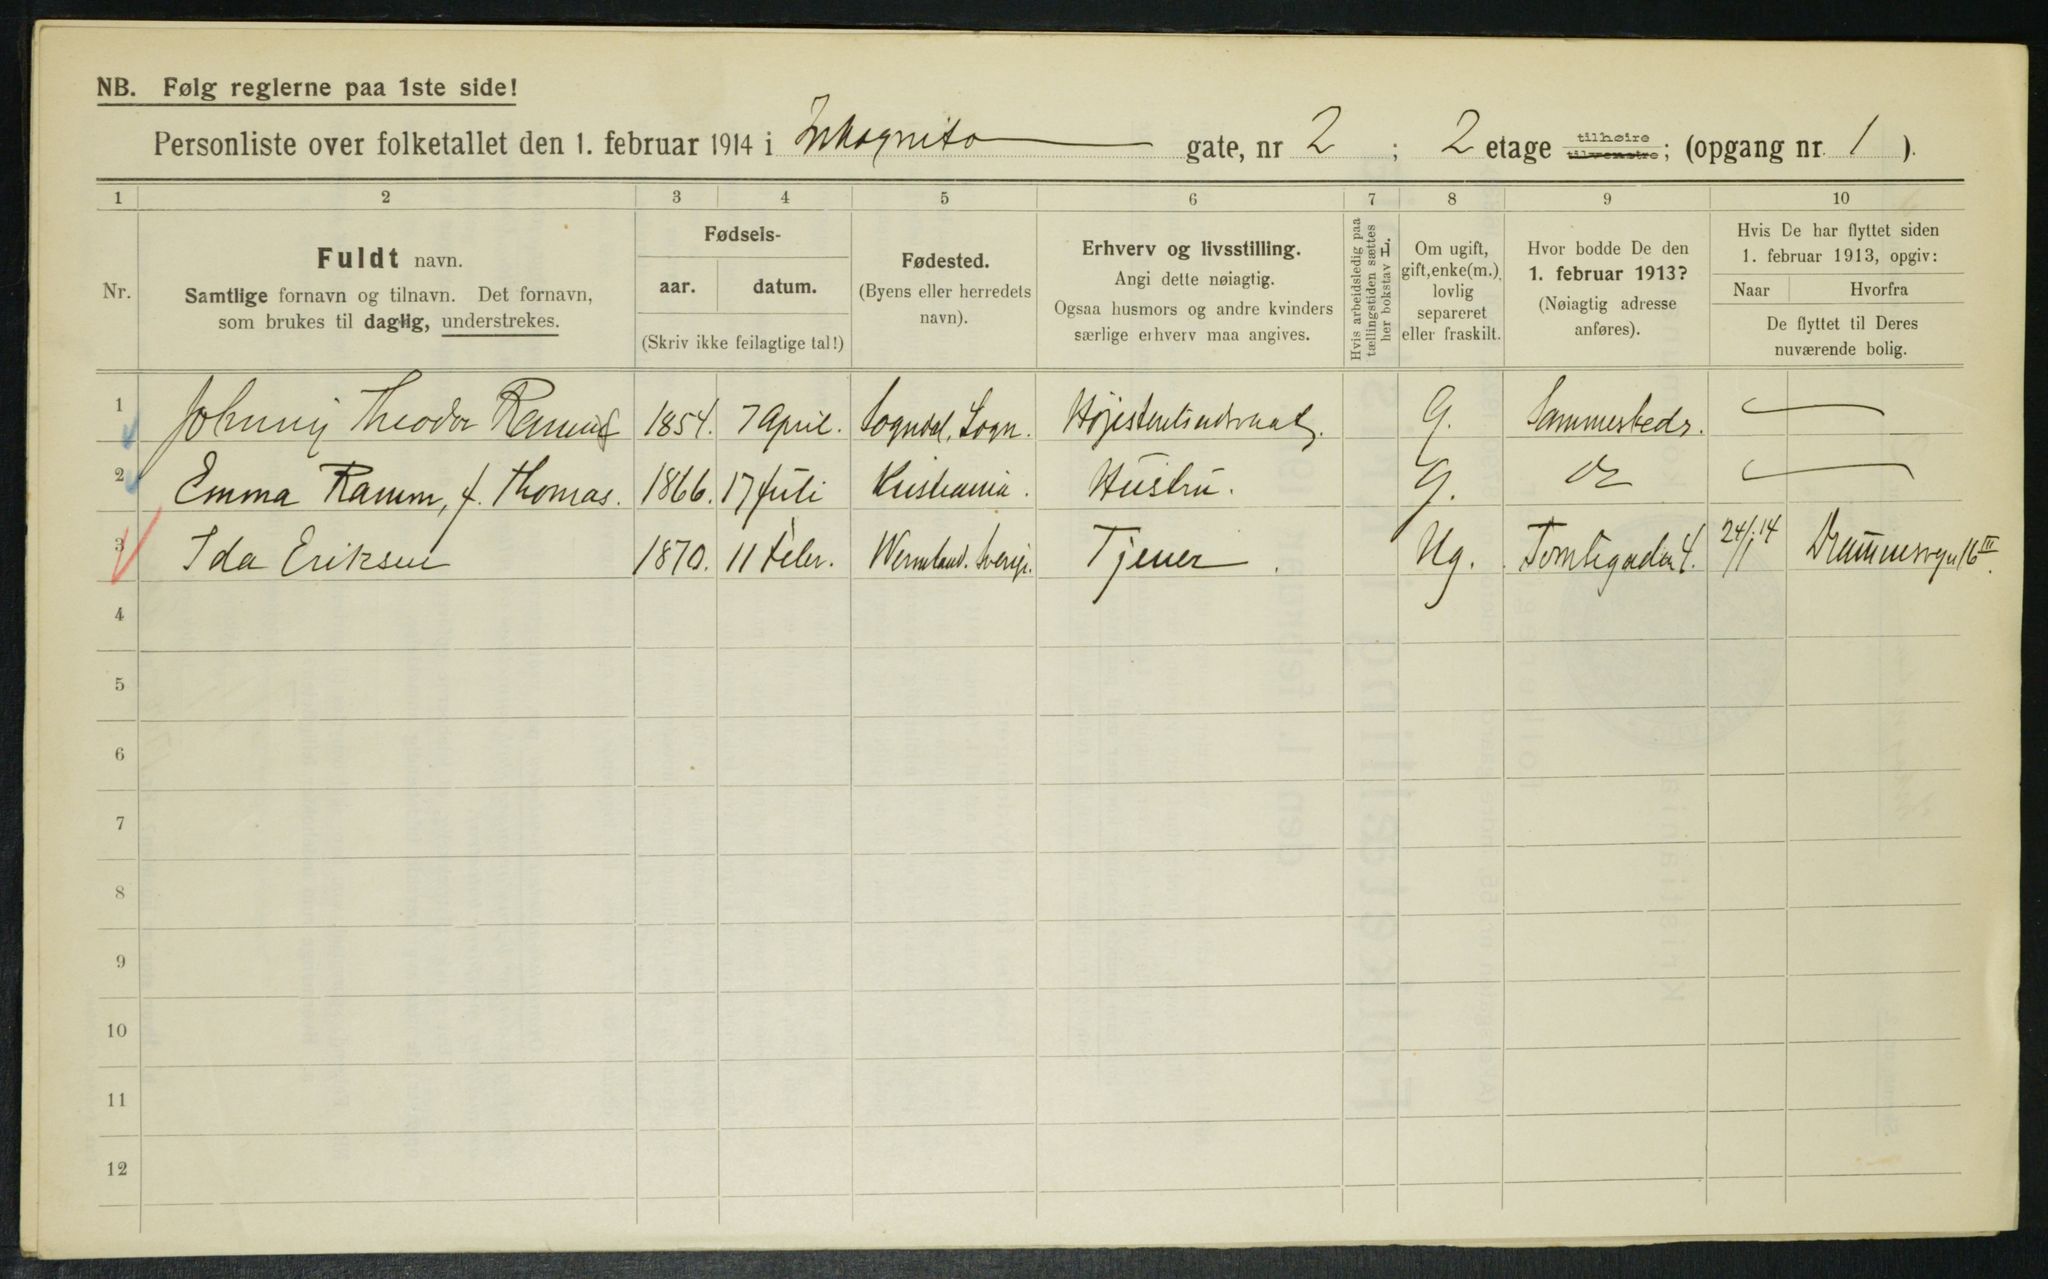 NB. Følg reglerne paa 1ste side!
Personliste over folketallet den 1. februar 1914 i Inkognito gate, nr 2 ; 2 etage tilhøire tilvenstre; (opgang nr. 1 ).
1 2 3 4 5 6 7 8 9 10
Nr.
Fuldt navn.
Samtlige fornavn og tilnavn. Det fornavn,
som brukes til daglig, understrekes.
Fødsels-
aar. datum.
(Skriv ikke feilagtige tal!)
Fødested.
(Byens eller herredets
navn).
Erhverv og livsstilling.
Angi dette nøiagtig.
Ogsaa husmors og andre kvinders
særlige erhverv maa angives.
Hvis arbeidsledig paa
tællingstiden sættes
her bokstav H.
Om ugift,
gift, enke(m.),
lovlig
separeret
eller fraskilt.
Hvor bodde De den
1. februar 1913?
(Nøiagtig adresse
anføres).
Hvis De har flyttet siden
1. februar 1913, opgiv:
Naar Hvorfra
De flyttet til Deres
nuværende bolig.
1 Johnny Theodor Ramm 1854. 7 April. Sogndal, Sogn. G. Sammesteds.
2 Emma Ramm, f. Thomas. 1866. 17 Juli Kristiania. Hustru. G. do
3 Ida Eriksen 1870. 11 Febr. Wermland. Sverige. Tjener. Ug. Tomtegaden 4. 24/1 14 Drammensvejn 16 III.
4
5
6
7
8
9
10
11
12